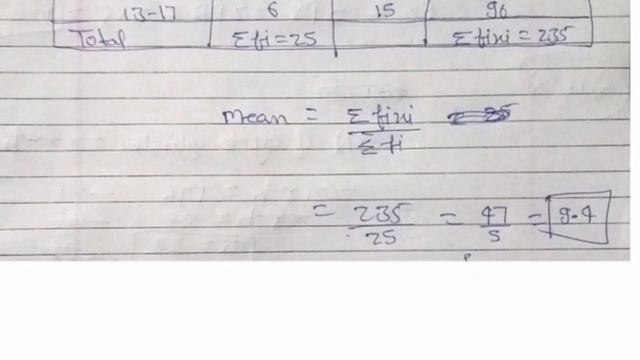 13-17 6 15 90
Total Σfi=25 Σfixi=235
mean = Σfixi/Σfi
= 235/25 = 47/5 = 9.4